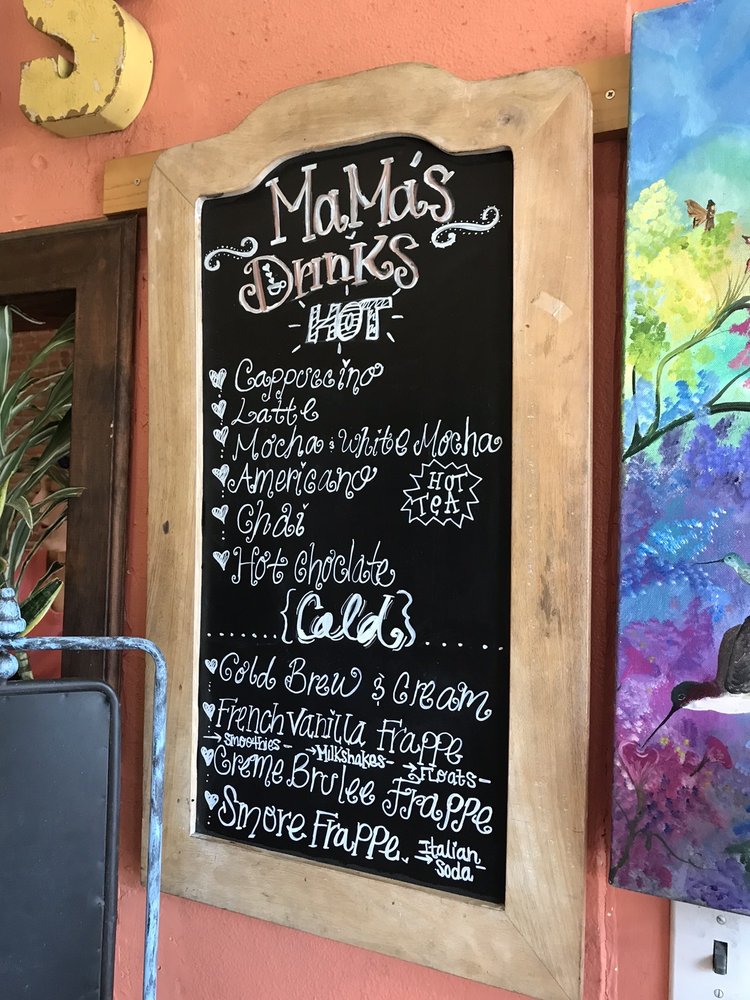 S
MaMa's
Drinks
HOT
Cappuccino
Latte
Mocha & White Mocha
Americano
HOT
TEA
Chai
Hot Choclate
{Cold}
Cold Brew & Cream
French Vanilla Frappe
→ Smoothies - → Milkshakes - → Floats -
Creme Brulee Frappe
Smore Frappe
→ Italian
Soda